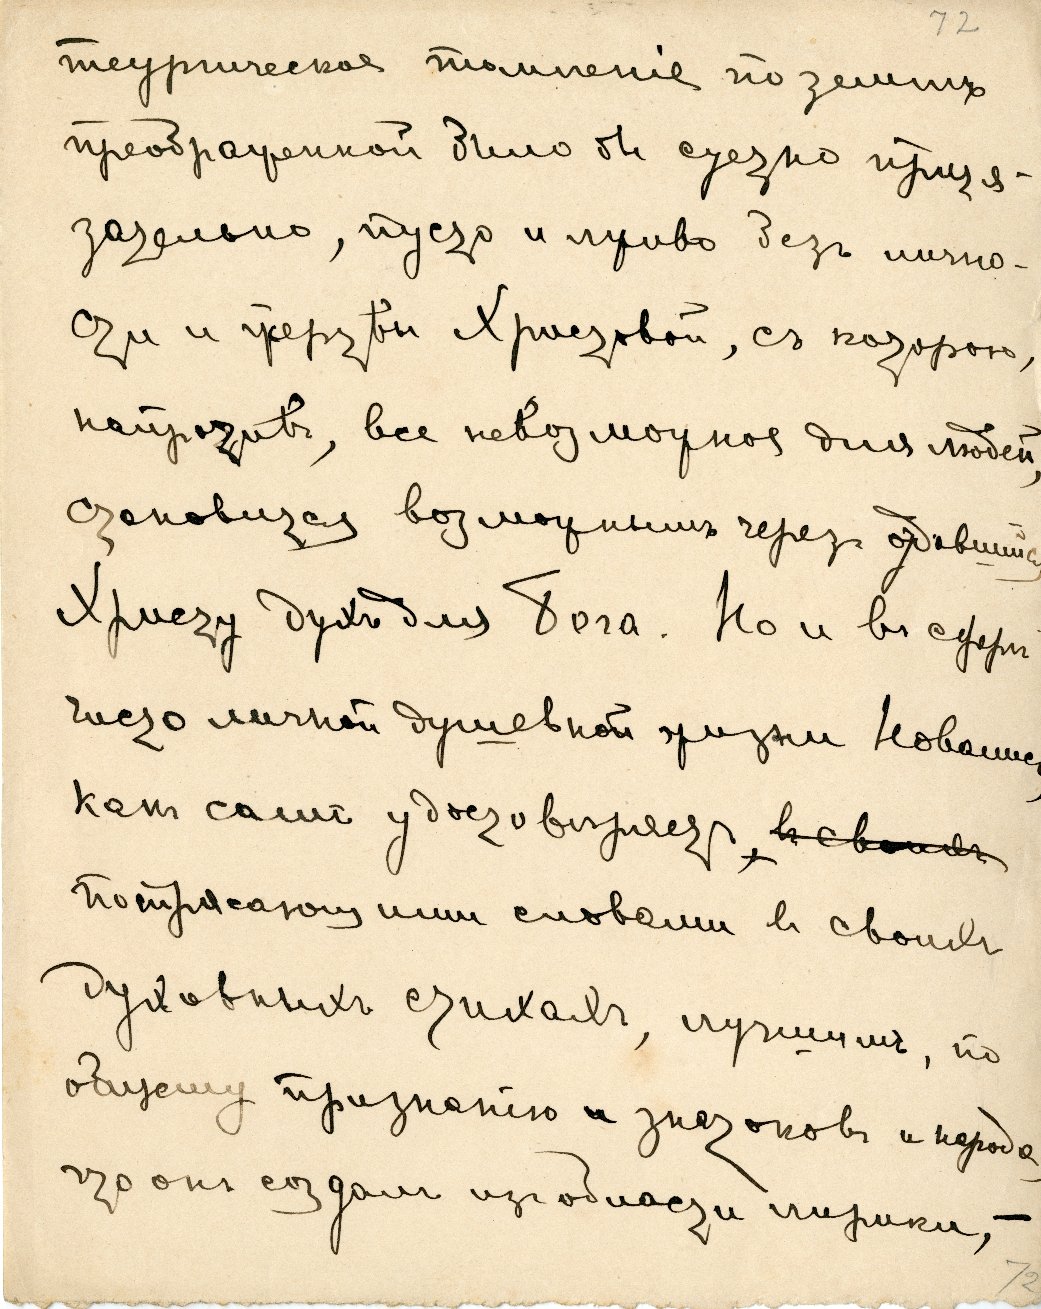 72
теургическое томленіе по землѣ
преображенной было бы суетно притя-
зательно, пусто и лживо безъ лично-
сти и жертвы Христовой, съ которою,
напротивъ, все невозможное для людей,
становится возможнымъ черезъ отдавшійся
Христу духъ для Бога. Но и въ сферѣ
чисто личной душевной жизни Новалисъ,
какъ самъ удостовѣряетъ, въ своихъ
потрясающими словами въ своихъ
духовныхъ стихахъ, лучшимъ, по
общему признанію и знатоковъ и народа
что онъ создалъ изъ области лирики, —
72